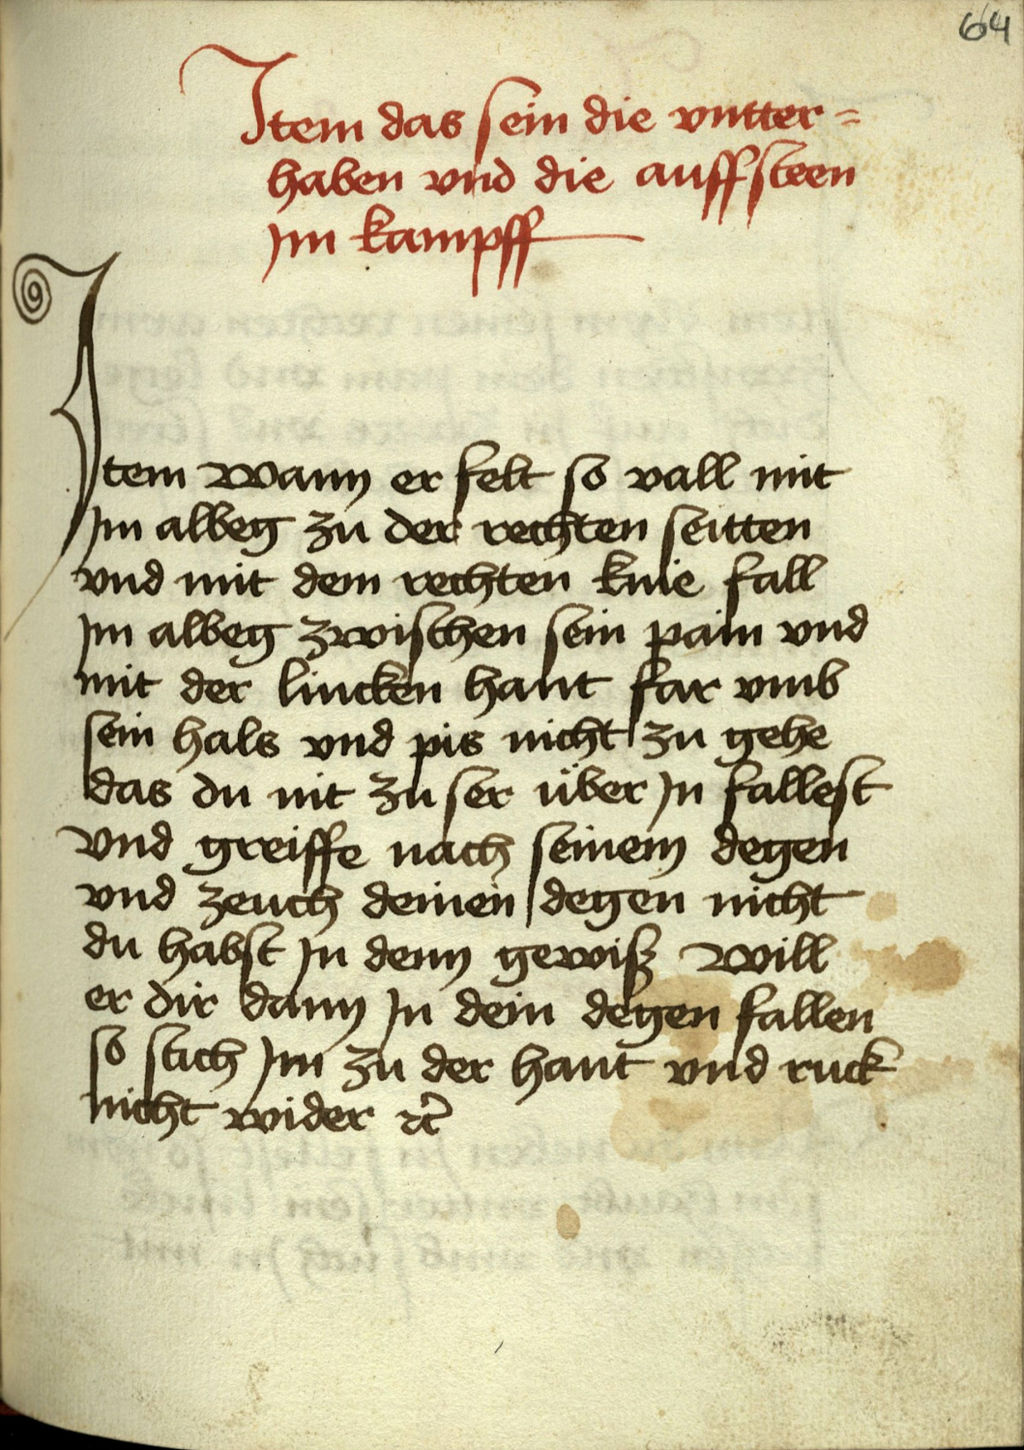 64
Item das sein die vntter=
haben vnd die auffsteen
Im kampff
Item wann er felt so vall mit
Im albeg zu der rechten seitten
vnd mit dem rechten knie fall
Im albeg zwischen sein pain vnd
mit der lincken hant far vmb
sein hals vnd pis nicht zu gehe
das du nit zu ser über In fallest
vnd greiffe nach seinem degen
vnd zeuch deinen degen nicht
du habst In denn gewiß will
er dir dann In dein degen fallen
so stich Im zu der hant vnd ruck
nicht wider ⁊c̃